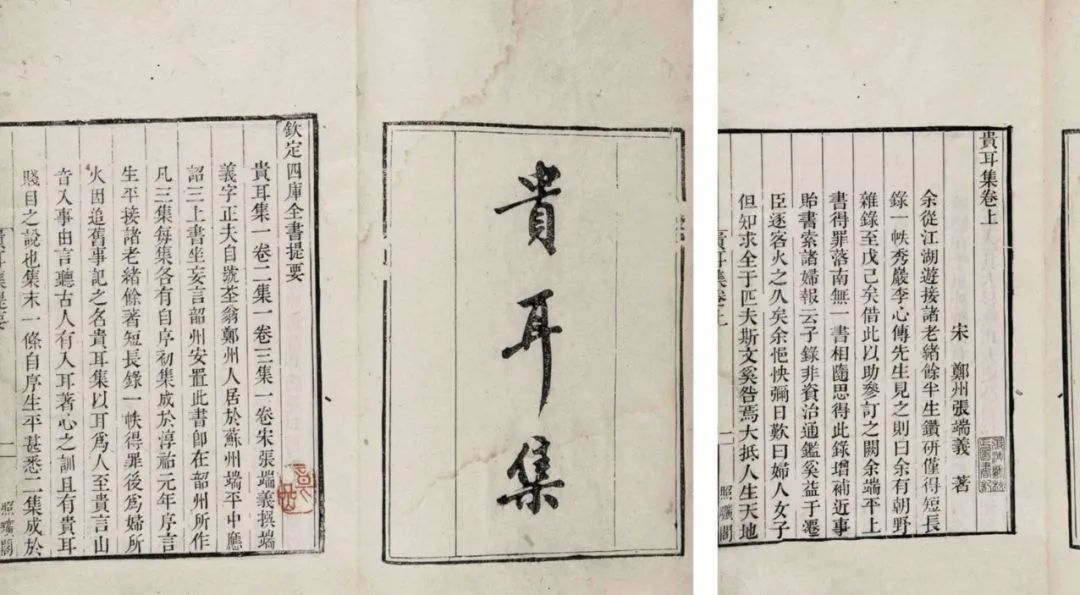 貴耳集
欽定四庫全書提要
貴耳集一卷二集一卷三集一卷宋張端義撰端
義字正夫自號荃翁鄭州人居於蘇州端平中應
詔三上書坐妄言韶州安置此書即在韶州所作
凡三集每集各有自序初集成於淳祐元年序言
生平接諸老緒餘著短長錄一帙得罪後爲婦所
火因追舊事記之名貴耳集以耳爲人至貴言由
音入事由言聽古人有入耳著心之訓且有貴耳
賤目之說也集末一條自序生平甚悉二集成於
貴耳集提要
一
照曠閣
貴耳集卷上
宋 鄭州張端義 著
余從江湖遊接諸老緒餘半生鑽研僅得短長
錄一帙秀巖李心傳先生見之則曰余有朝野
雜錄至戊己矣借此以助參訂之闕余端平上
書得罪落南無一書相隨思得此錄增補近事
貽書索諸婦報云子錄非資治通鑑奚益于遷
臣逐客火之久矣余悒怏彌日歎曰婦人女子
但知求全于匹夫斯文奚咎焉大抵人生天地
貴耳集卷上
一
照曠閣